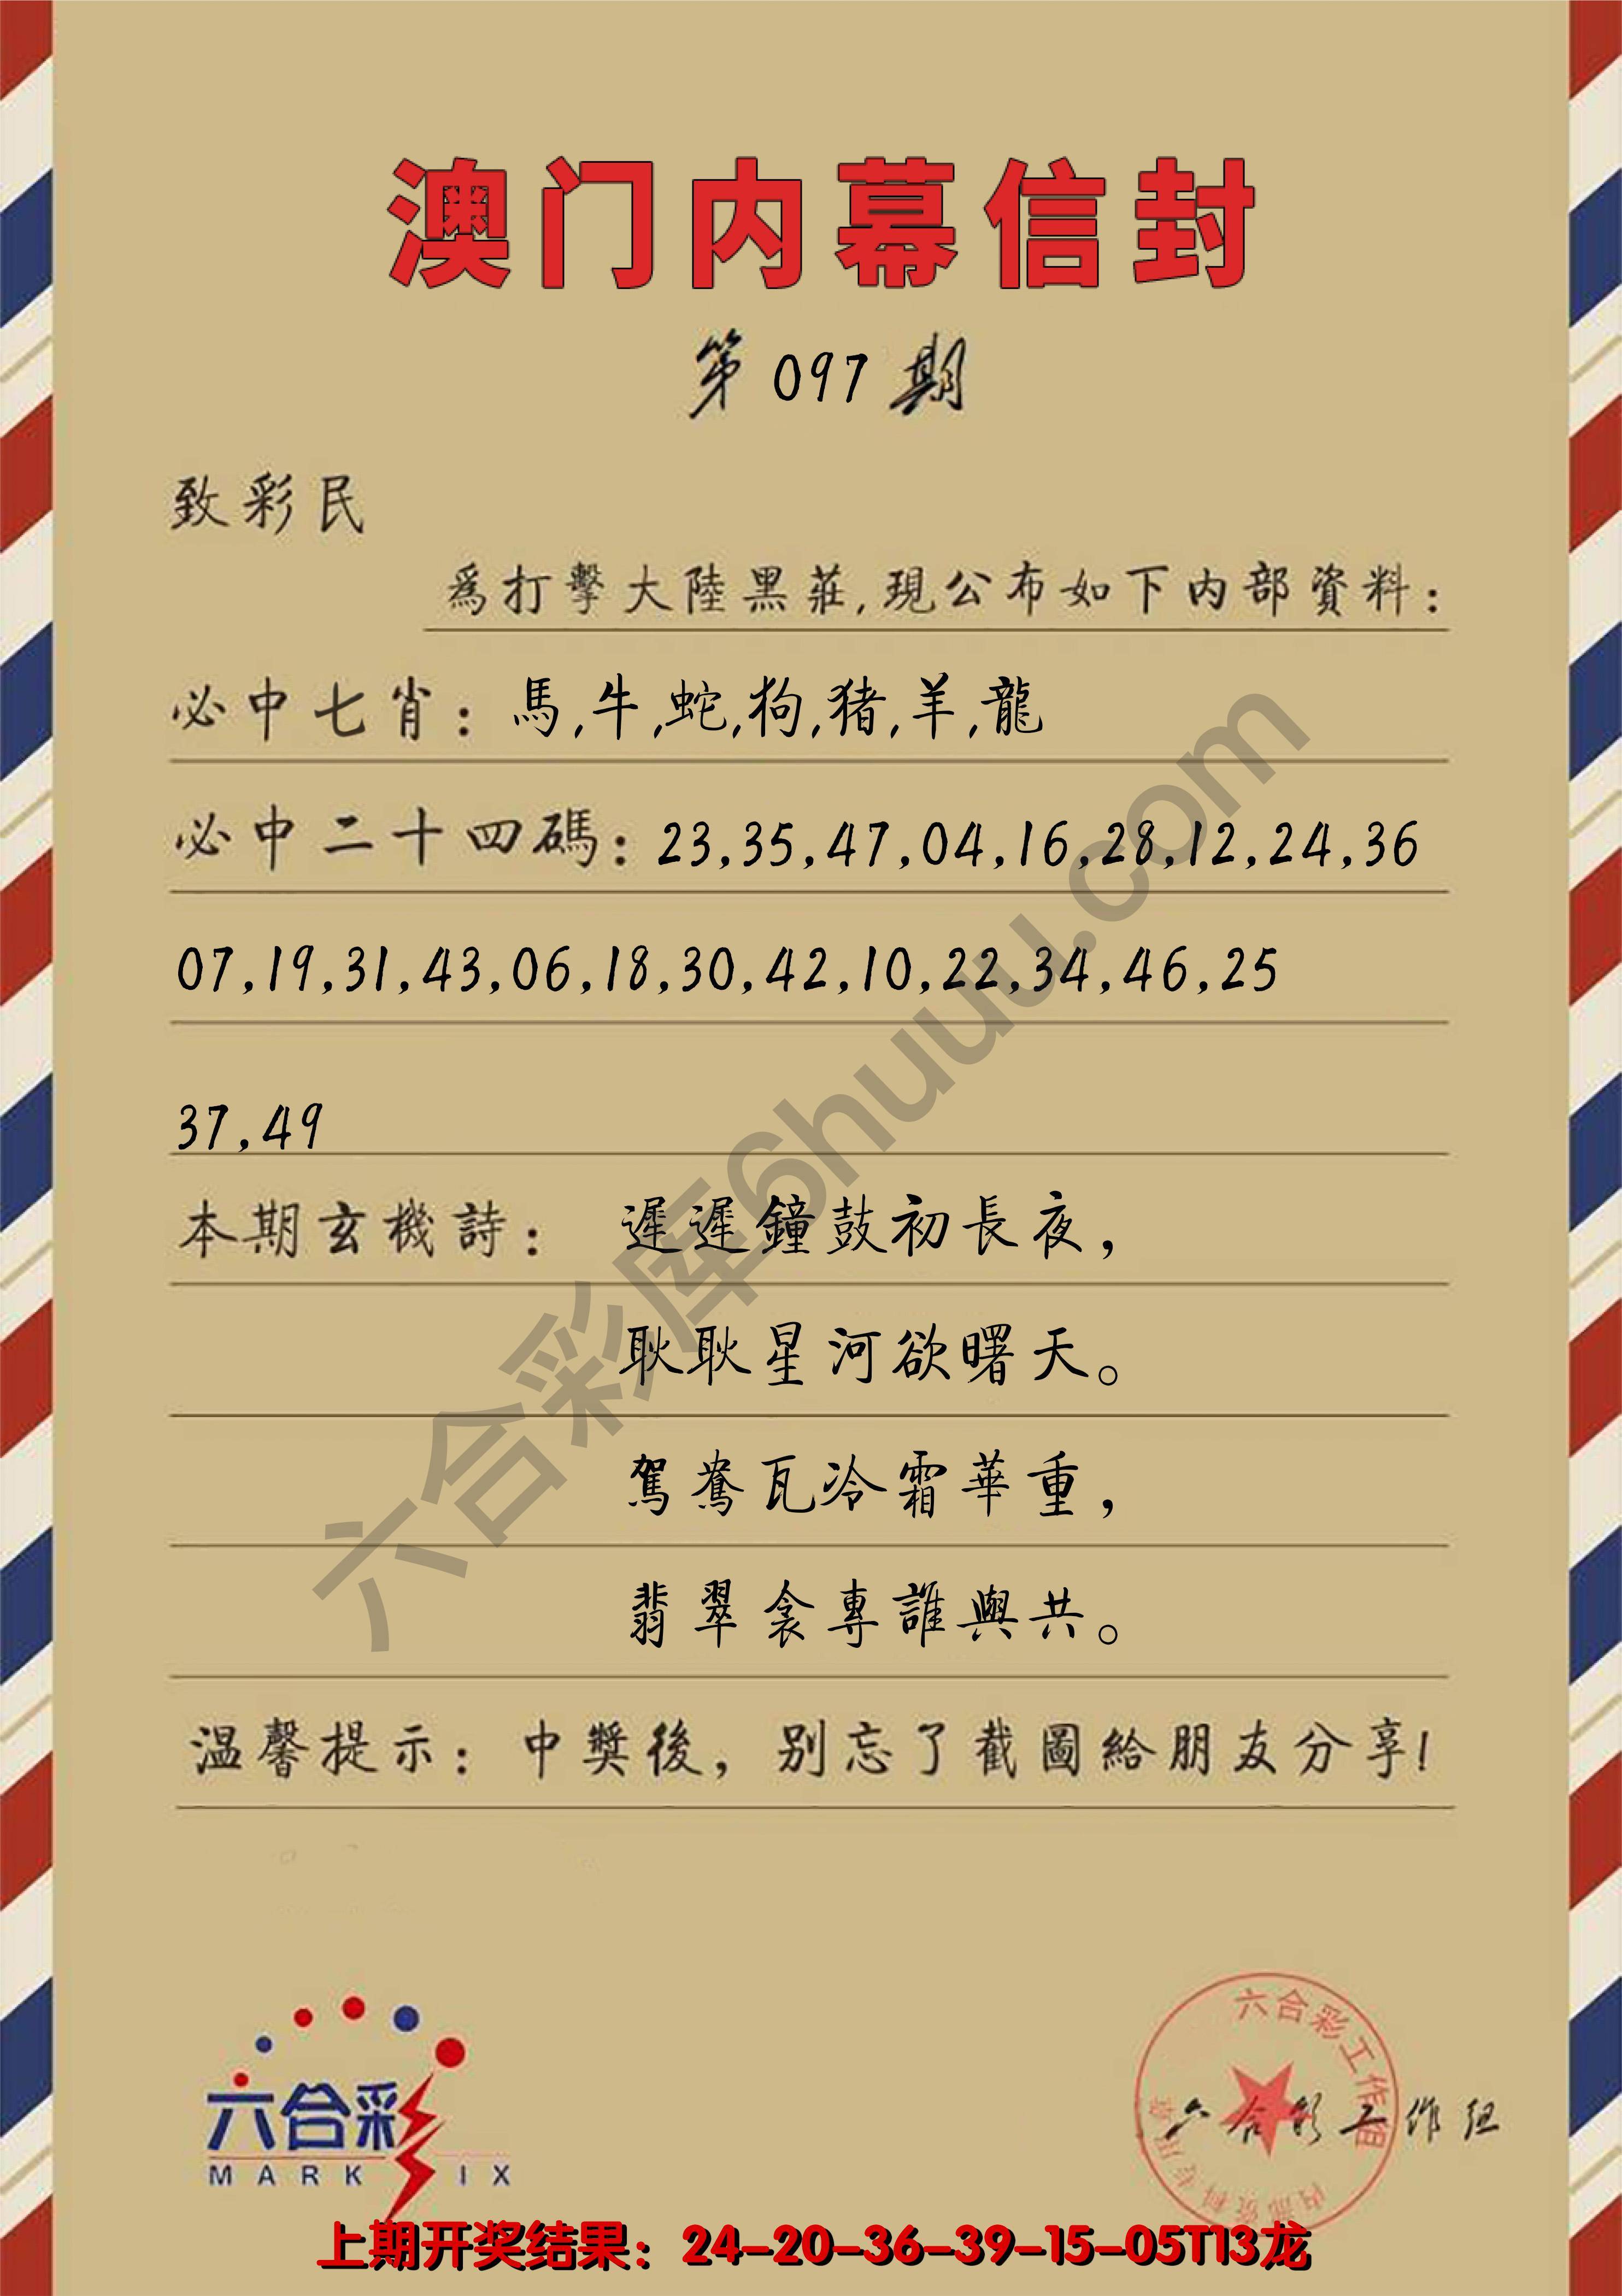 澳门内幕信封
第097期
致彩民
為打擊大陸黑莊,現公布如下内部資料:
必中七肖:馬,牛,蛇,狗,猪,羊,龍
必中二十四碼:23,35,47,04,16,28,12,24,36
07,19,31,43,06,18,30,42,10,22,34,46,25
37,49
本期玄機詩: 遲遲鐘鼓初長夜,
耿耿星河欲曙天。
駕鴦瓦冷霜華重,
翡翠衾專誰與共。
温馨提示:中獎後,别忘了截圖給朋友分享!
六合彩库6huuu.com
六合彩
MARK IX
六合彩工作组
内部资料专用章
六合彩工作组
上期开奖结果:24-20-36-39-15-05T13龙